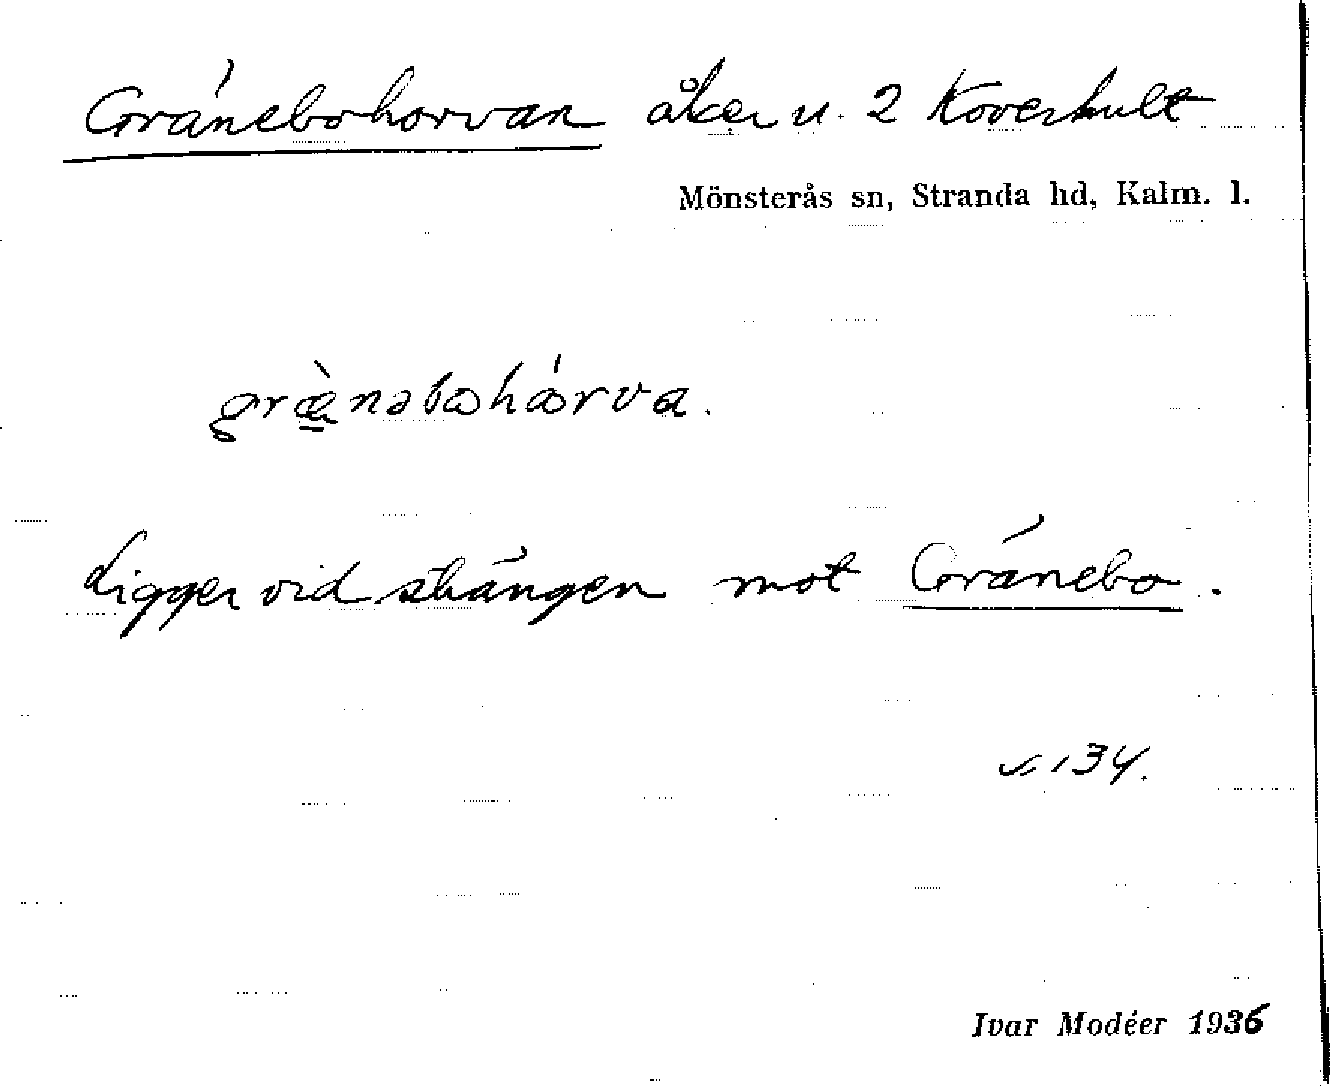 Gränebohorvan åker u. 2 Koverhult
Mönsterås sn, Stranda hd, Kalm. l.
græ̀nəbωhǿrva.
Ligger vid stängen mot Gränebo.
134.
Ivar Modéer 1936